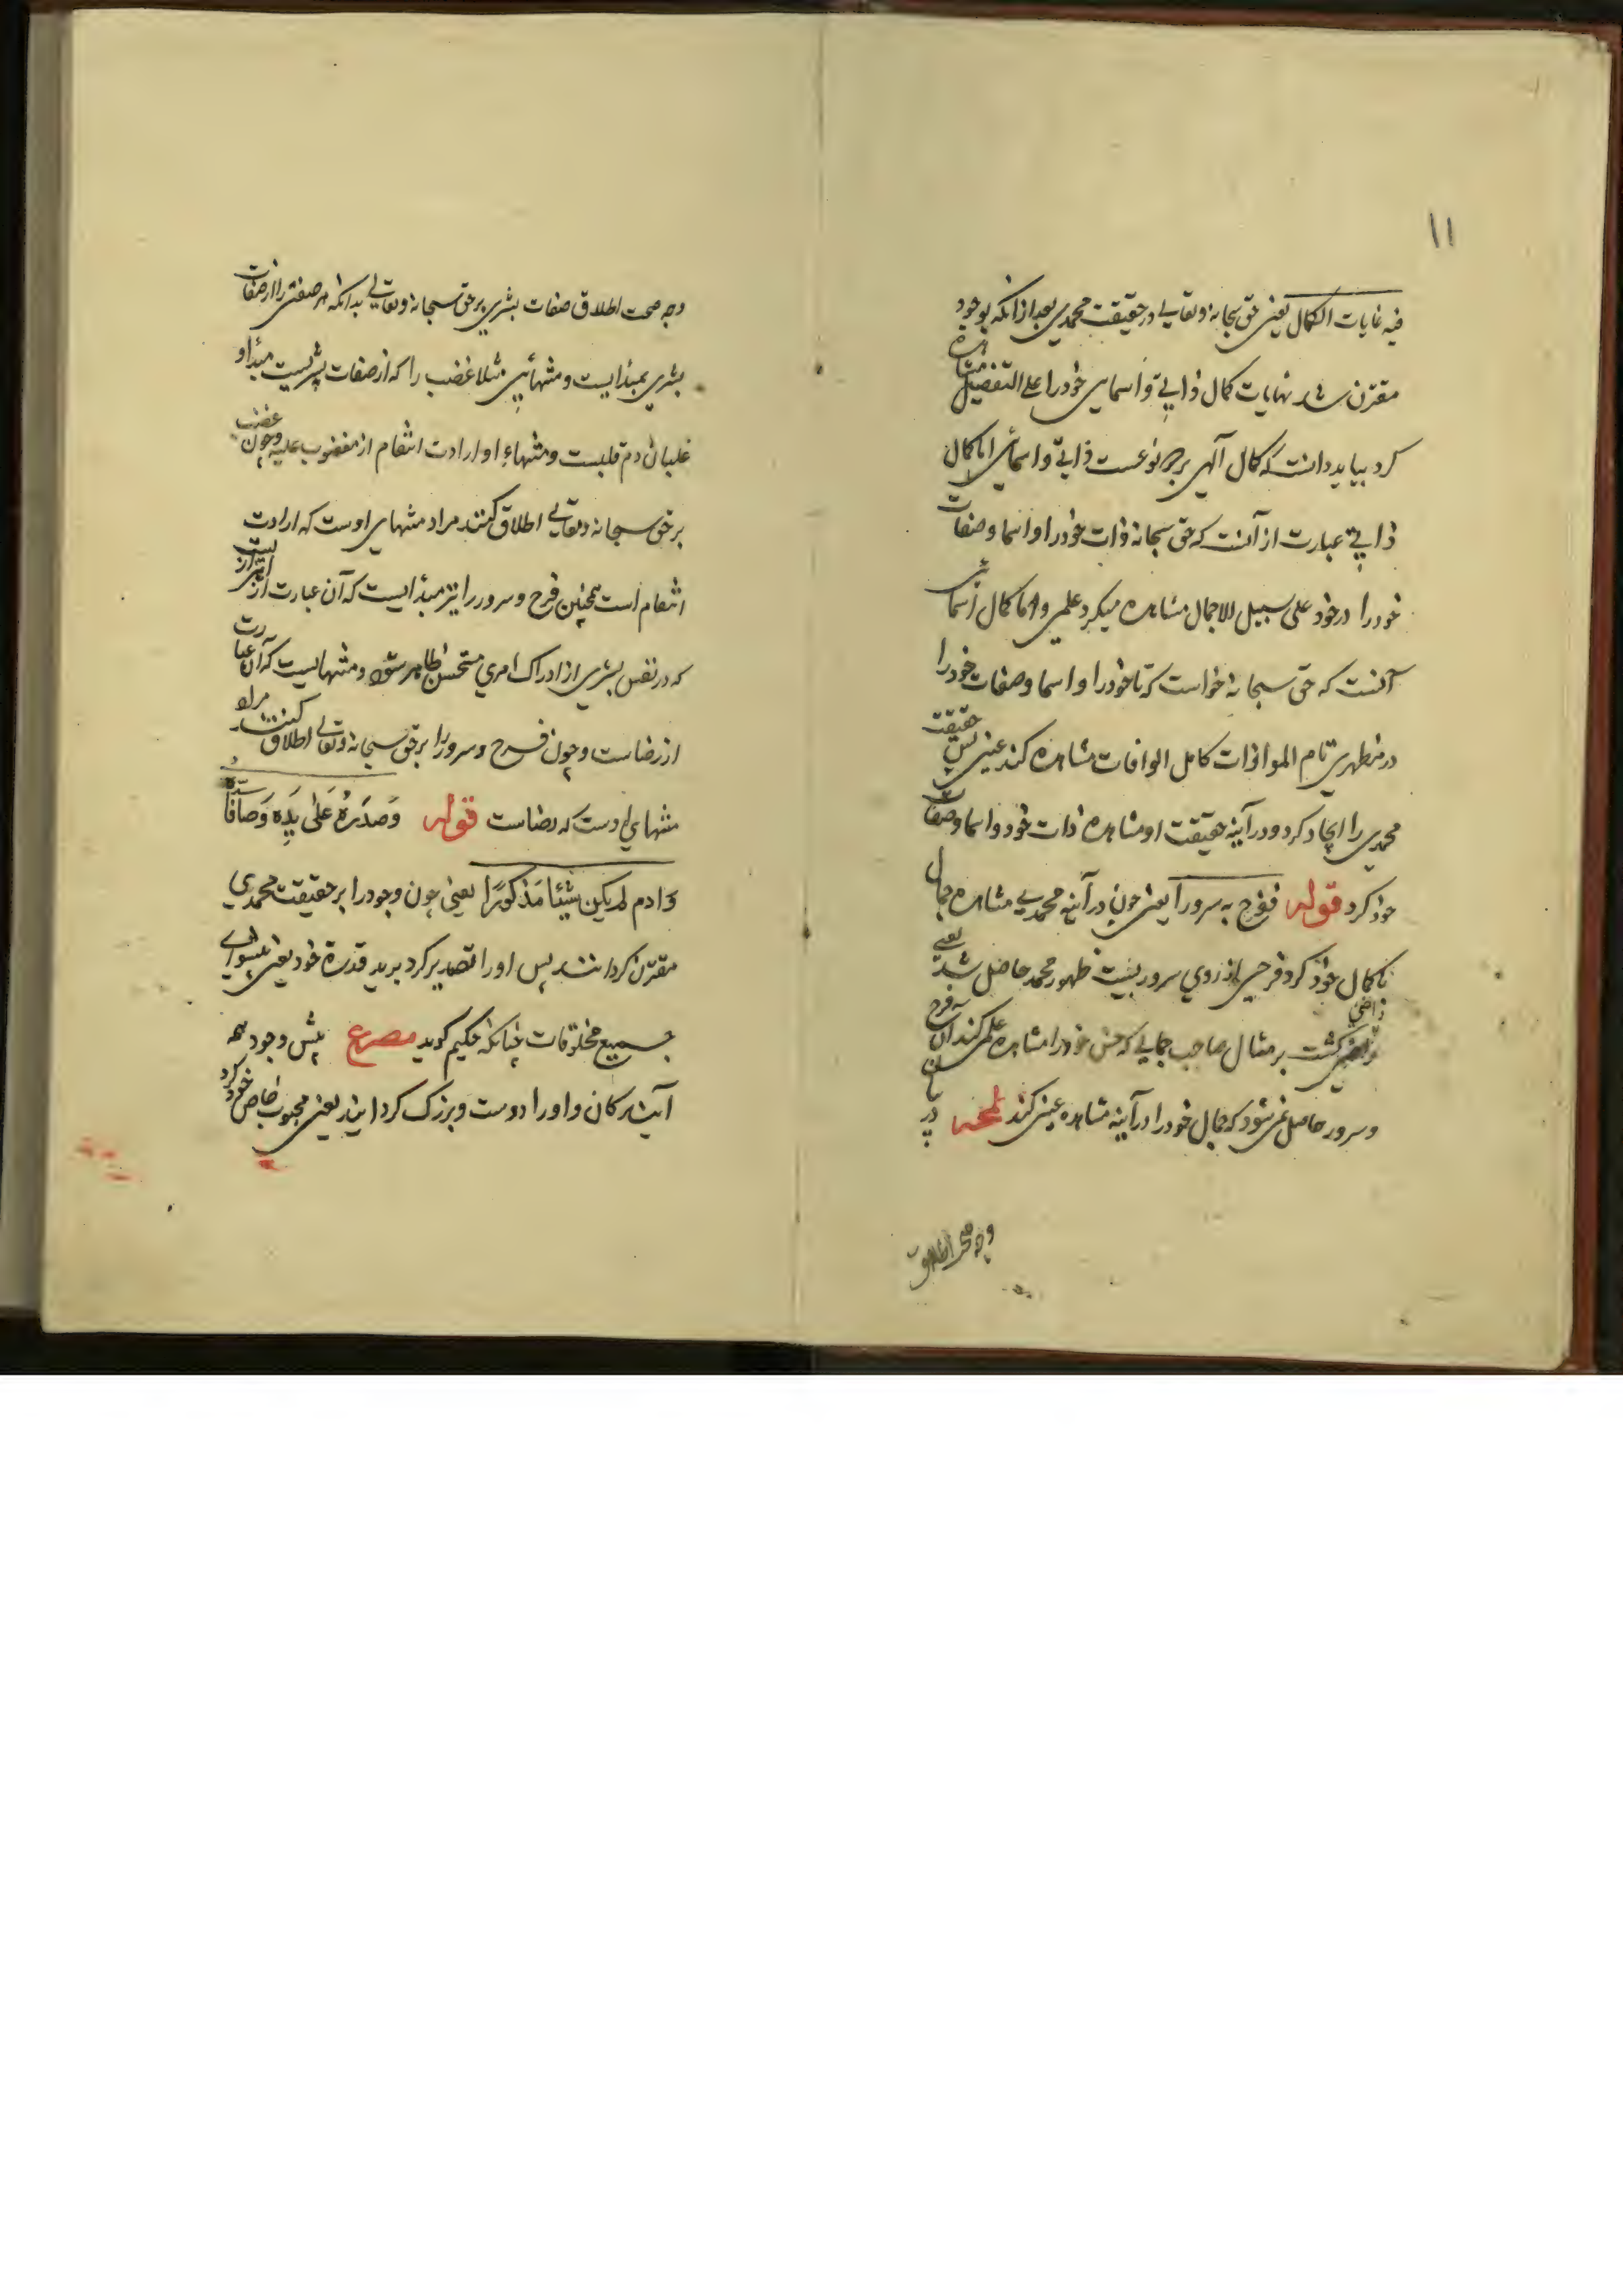 ۱۱
فیه غایات الکمال یعنی حق سبحانه و تعالی در حقیقت محمدی بعد از آنکه بوجود
مقترن شد نهایات کمال ذاتی و اسمایی خود را علی التفصیل مشاهده
کرد بباید دانست که کمال آلهی بر دو نوعست ذاتی و اسمائی اما کمال
ذاتی عبارت از آنست که حق سبحانه ذات خود را و اسما و صفات
خود را در خود علی سبیل الاجمال مشاهده میکرد علمی و اما کمال اسمائی
آنست که حق سبحانه خواست که تا خود را و اسما و صفات خود را
در مظهری تام الموازات کامل الوافات مشاهده کند عینی پس حقیقت
محمدی را ایجاد کرد و در آینه حقیقت او مشاهده ذات خود و اسما و صفات
خود کرد قوله ففرح به سرورا یعنی چون در آینه محمدی مشاهده جمال
با کمال خود کرد فرحی از روی سرور بنسبت ظهور محمد حاصل شد یعنی
راضی گشت بر مثال صاحب جمالی که حسن خود را مشاهده علمی کند آن فرح
و سرور حاصل نمی شود که جمال خود را در آینه مشاهده عینی کند لمحه در بیان
وجه صحت اطلاق
وجه صحت اطلاق صفات بشری بر حق سبحانه و تعالی بدانکه هر صفتی را از صفات
بشری مبدایست و منتهائی مثلا غضب را که از صفات بشریست مبدأ او
غلیان دم قلبست و منتهاء او ارادت انتقام از مغضوب علیه و چون غضب
بر حق سبحانه و تعالی اطلاق کنند مراد منتهای اوست که ارادت
انتقام است همچنین فرح و سرور را نیز مبدأیست که آن عبارت از
که در نفس بشری از ادراک امری مستحسن ظاهر شود و منتهایست که آن عبارت
از رضاست و چون فرح و سرور را بر حق سبحانه و تعالی اطلاق کنند مراد
منتهای اوست که رضاست قوله وَصَدَرَهُ عَلی یَدِه وَصَافَا
وَادم لم یکن شَیئا مَذکورًا یعنی چون وجود را بر حقیقت محمدی
مقترن کردانند پس او را تصدیر کرد برید قدرة خود یعنی پیشوای
جمیع مخلوقات چنانکه حکیم کوید مصرع پیش وجود همه
آیندکان و او را دوست و بزرک کردانید یعنی محبوب خاص خود کرد